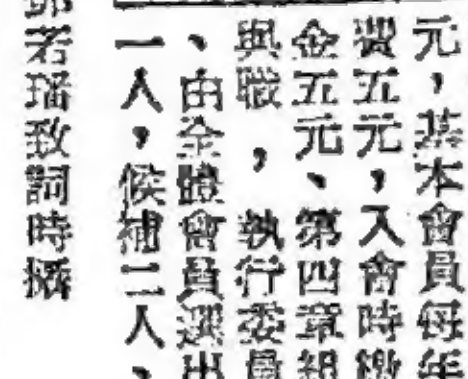 元，基本會員每年
費五元，入會時繳
金五元、第四章組
與職，執行委員
、由全體會員選出
一人，候補二人、
若瑙致詞時攝